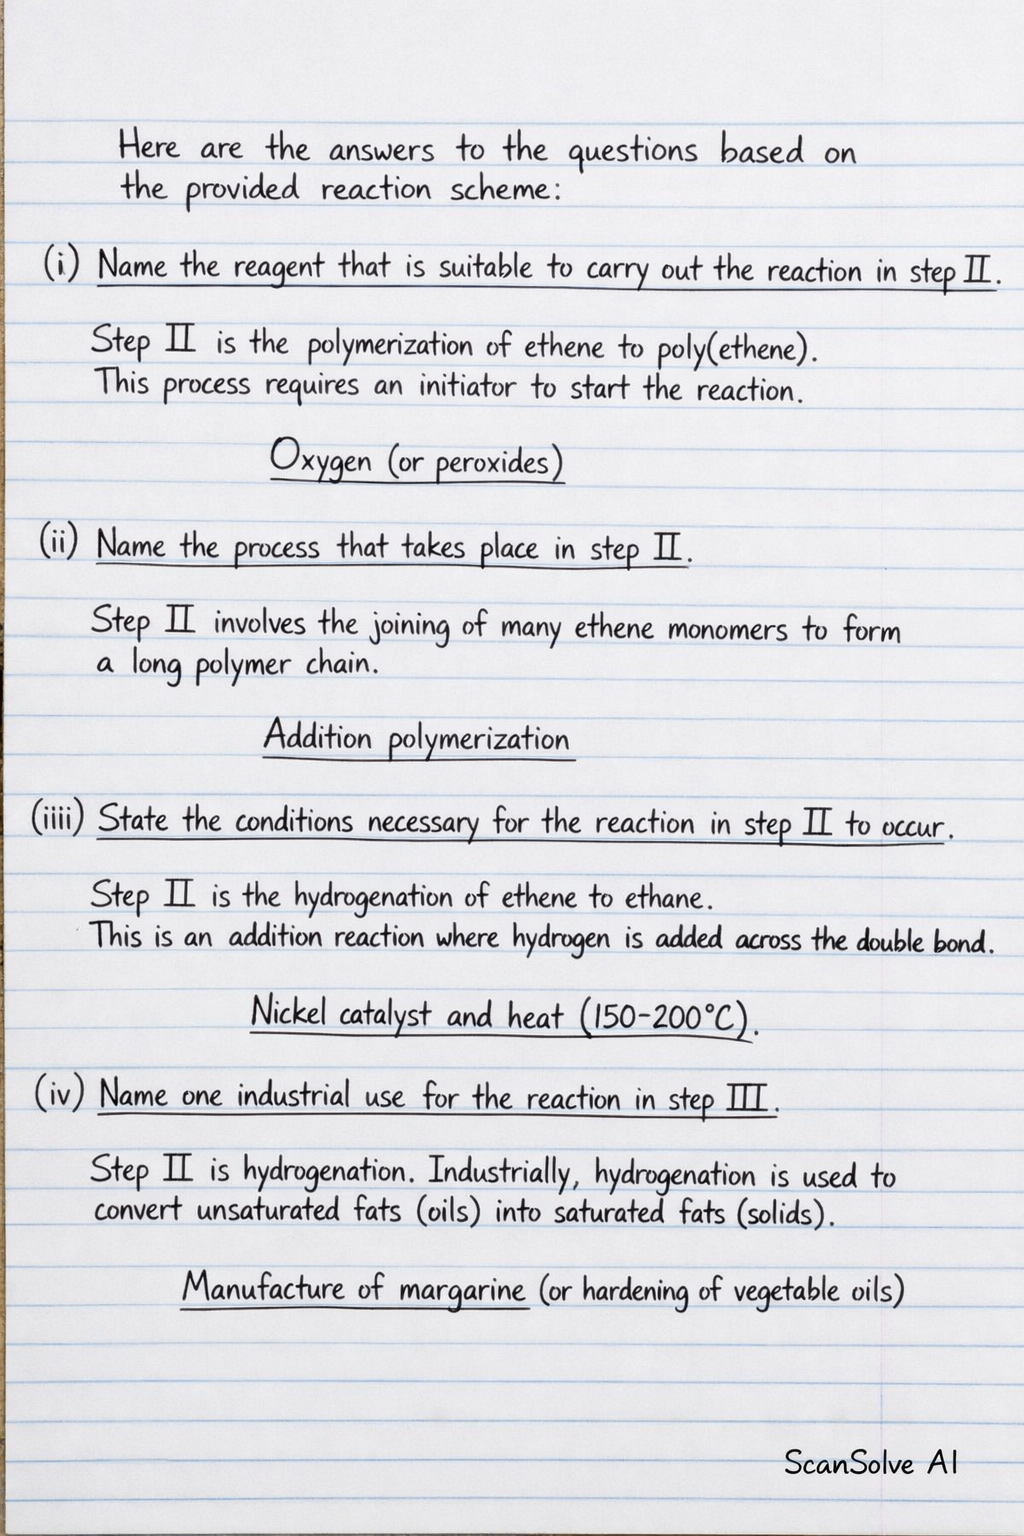 Here are the answers to the questions based on
the provided reaction scheme:
(i) Name the reagent that is suitable to carry out the reaction in step II.
Step II is the polymerization of ethene to poly(ethene).
This process requires an initiator to start the reaction.
Oxygen (or peroxides)
(ii) Name the process that takes place in step II.
Step II involves the joining of many ethene monomers to form
a long polymer chain.
Addition polymerization
(iiii) State the conditions necessary for the reaction in step II to occur.
Step II is the hydrogenation of ethene to ethane.
This is an addition reaction where hydrogen is added across the double bond.
Nickel catalyst and heat (150-200°C).
(iv) Name one industrial use for the reaction in step III.
Step II is hydrogenation. Industrially, hydrogenation is used to
convert unsaturated fats (oils) into saturated fats (solids).
Manufacture of margarine (or hardening of vegetable oils)
ScanSolve AI